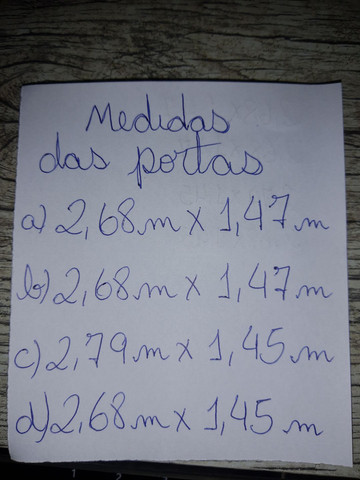 Medidas
das portas
a) 2,68 m x 1,47 m
b) 2,68 m x 1,47 m
c) 2,79 m x 1,45 m
d) 2,68 m x 1,45 m